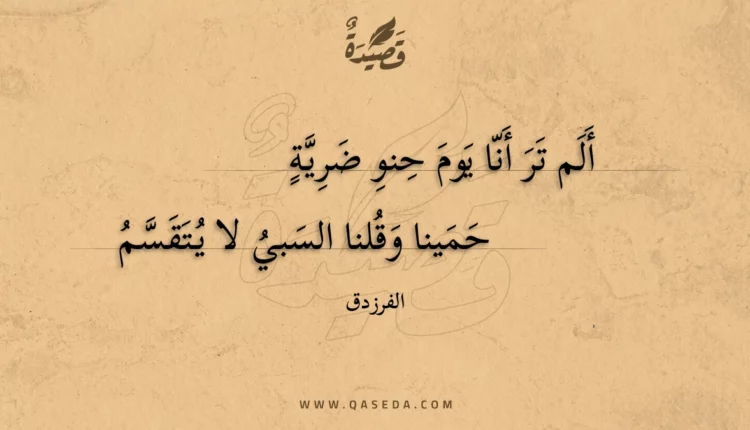 قَصِيدَةٌ
أَلَم تَرَ أَنّا يَومَ حِنوِ ضَرِيَّةٍ
حَمَينا وَقُلنا السَبيُ لا يُتَقَسَّمُ
الفرزدق
WWW.QASEDA.COM